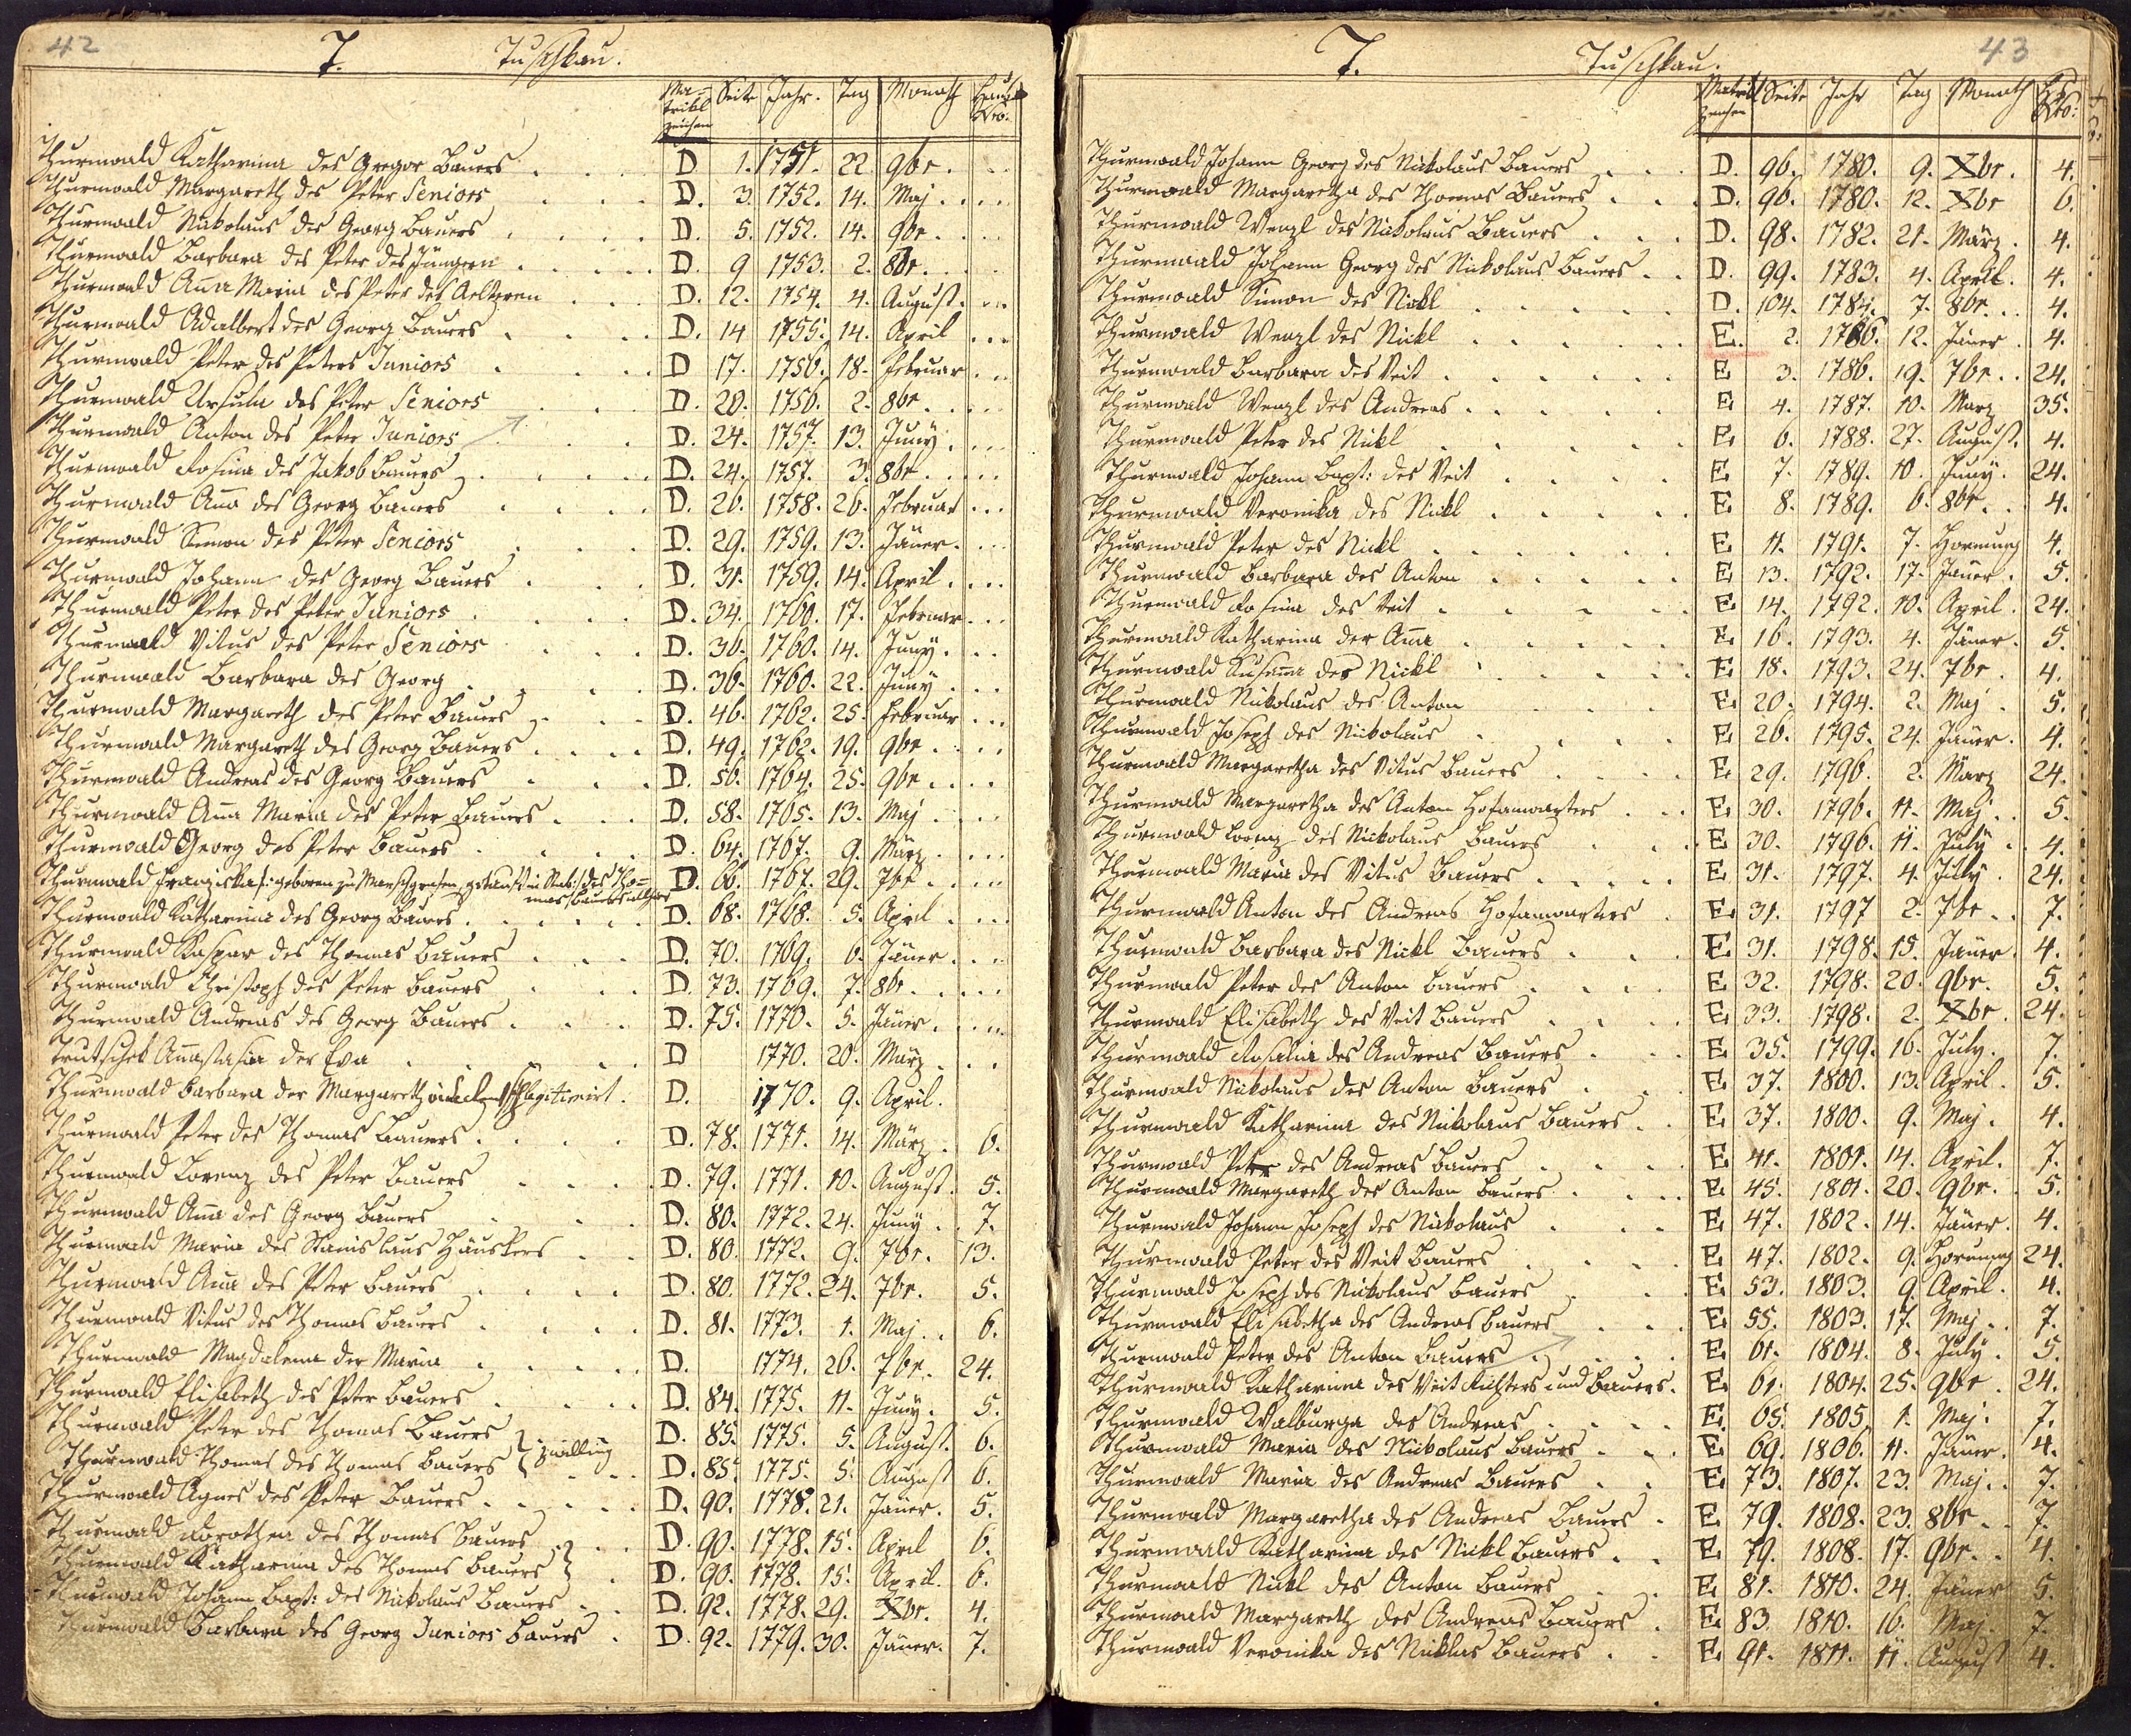 42
T. Tuschkau.
Ma= trikl zeichen Seite Jahr. Tag Monath Haus Nro.
Thurnwald Katharina des Gregor Bauers D 1. 1751. 22. 9br.
Thurnwald Margareth des Peter Seniors D. 3. 1752. 14. Maj.
Thurnwald Nikolaus des Georg Bauers D. 5. 1752. 14. 9br.
Thurnwald Barbara des Peter des Jüngern D. 9 1753. 2. 8br.
Thurnwald Anna Maria des Peter des Aelteren D. 12. 1754. 4. August.
Thurnwald Adalbert des Georg Bauers D. 14 1755. 14. April
Thurnwald Peter des Peters Juniors D 17. 1756. 18. Februar
Thurnwald Ursula des Peter Seniors D. 20. 1756. 2. 8br.
Thurnwald Anton des Peter Juniors D. 24. 1757. 13. Juny.
Thurnwald Rosina des Jakob Bauers D. 24. 1757. 3. 8br.
Thurnwald Anna des Georg Bauers D. 26. 1758. 26. Februar
Thurnwald Simon des Peter Seniors D. 29. 1759. 13. Jäner.
Thurnwald Johann des Georg Bauers D. 31. 1759. 14. April.
Thurnwald Peter des Peter Juniors D. 34. 1760. 17. Februar
Thurnwald Vitus des Peter Seniors D. 36. 1760. 14. Juny.
Thurnwald Barbara des Georg D. 36. 1760. 22. Juny
Thurnwald Margareth des Peter Bauers D. 46. 1762. 25. Februar
Thurnwald Margareth des Georg Bauers D. 49. 1762. 19. 9br.
Thurnwald Andreas des Georg Bauers D. 56. 1764. 25. 9br.
Thurnwald Anna Maria des Peter Bauers D. 58. 1765. 13. Maj
Thurnwald Georg des Peter Bauers D. 64. 1767. 9. März.
Thurnwald Franziska geboren zu getauft in des Tho= mas Bauers D. 66. 1767. 29. 7br.
Thurnwald Katharina des Georg Bauers D. 68. 1768. 5. April
Thurnwald Kaspar des Thomas Bauers D. 70. 1769. 6. Jäner.
Thurnwald Christoph des Peter Bauers D. 73. 1769. 7. 8br.
Thurnwald Andreas des Georg Bauers D. 75. 1770. 5. Jäner.
Trutschek Anastasia der Eva D 1770. 20. März
Thurnwald Barbara der Margareth legitimirt. D. 1770. 9. April.
Thurnwald Peter des Thomas Bauers D. 78. 1771. 14. März. 6.
Thurnwald Lorenz des Peter Bauers D. 79. 1771. 10. August. 5.
Thurnwald Anna des Georg Bauers D. 80. 1772. 24. Juny. 7.
Thurnwald Maria des Stanislaus Häuslers D. 80. 1772. 9. 7br. 13.
Thurnwald Anna des Peter Bauers D. 80. 1772. 24. 7br. 5.
Thurnwald Vitus des Thomas Bauers D. 81. 1773. 1. Maj. 6.
Thurnwald Magdalena der Maria D. 1774. 26. 7br. 24.
Thurnwald Elisabeth des Peter Bauers D. 84. 1775. 11. Juny. 5.
Thurnwald Peter des Thomas Bauers D. 85. 1775. 5. August. 6.
Thurnwald Thomas des Thomas Bauers } Zwilling D. 85. 1775. 5. August 6.
Thurnwald Agnes des Peter Bauers D. 90. 1778. 21. Jäner. 5.
Thurnwald Dorothea des Thomas Bauers D. 90. 1778. 15. April 6.
Thurnwald Katharina des Thomas Bauers } D. 90. 1778. 15. April. 6.
Thurnwald Johann Bapt: des Nickolaus Bauers D. 92. 1778. 29. Xbr. 4.
Thurnwald Barbara des Georg Juniors Bauers D. 92. 1779. 30. Jäner. 7.
43
T. Tuschkau.
Matrikl zeichen Seite Jahr Tag Monath Nro:
Thurnwald Johann Georg des Nickolaus Bauers D. 96. 1780. 9. Xbr. 4.
Thurnwald Margaretha des Thomas Bauers D. 96. 1780. 12. Xbr 6.
Thurnwald Wenzl des Nickolaus Bauers D. 98. 1782. 21. März. 4.
Thurnwald Johann Georg des Nickolaus Bauers D. 99. 1783. 4. April. 4.
Thurnwald Simon des Nickl D. 104. 1784. 7. 8br. 4.
Thurnwald Wenzl des Nickl E. 2. 1786. 12. Jäner. 4.
Thurnwald Barbara des Veit E 3. 1786. 19. 7br. 24.
Thurnwald Wenzl des Andreas E 4. 1787. 10. März 35.
Thurnwald Peter des Nickl E. 6. 1788. 27. August. 4.
Thurnwald Johann Bapt: des Veit E 7. 1789. 10. Juny. 24.
Thurnwald Veronika des Nickl E 8. 1789. 6. 8br. 4.
Thurnwald Peter des Nickl E 11. 1791. 7. Hornung 4.
Thurnwald Barbara des Anton E 13. 1792. 17. Jäner. 5.
Thurnwald Rosina des Veit E 14. 1792. 10. April. 24.
Thurnwald Katharina der Anna E 16. 1793. 4. Jäner. 5.
Thurnwald Susanna des Nickl E 18. 1793. 24. 7br. 4.
Thurnwald Nickolaus des Anton E 20. 1794. 2. Maj. 5.
Thurnwald Joseph des Nickolaus E 26. 1795. 24. Jäner. 4.
Thurnwald Margaretha des Vitus Bauers E 29. 1796. 2. März 24.
Thurnwald Margaretha des Anton Hofanwarters E 30. 1796. 11. Maj. 5.
Thurnwald Lorenz des Nickolaus Bauers E 30. 1796. 11. July 4.
Thurnwald Maria des Vitus Bauers E 31. 1797. 4. July. 24.
Thurnwald Anton des Andreas Hofanwarters E. 31. 1797 2. 7br. 7.
Thurnwald Barbara des Nickl Bauers E 31. 1798. 15. Jäner. 4.
Thurnwald Peter des Anton Bauers E 32. 1798. 20. 9br. 5.
Thurnwald Elisabeth des Veit Bauers E 33. 1798. 2. Xbr. 24.
Thurnwald Rosalia des Andreas Bauers E 35. 1799. 16. July. 7.
Thurnwald Nickolaus des Anton Bauers E 37. 1800. 13. April. 5.
Thurnwald Katharina des Nickolaus Bauers E 37. 1800. 9. Maj. 4.
Thurnwald Peter des Andreas Bauers E 41. 1801. 14. April. 7.
Thurnwald Margareth des Anton Bauers E 45. 1801. 20. 9br. 5.
Thurnwald Johann Joseph des Nickolaus E 47. 1802. 14. Jäner. 4.
Thurnwald Peter des Veit Bauers E 47. 1802. 9. Hornung 24.
Thurnwald Joseph des Nickolaus Bauers E 53. 1803. 9. April. 4.
Thurnwald Elisabetha des Andreas Bauers E 55. 1803. 17. Maj. 7.
Thurnwald Peter des Anton Bauers E 61. 1804. 8. July. 5.
Thurnwald Katharina des Veit Richters und Bauers. E 61. 1804. 25. 9br. 24.
Thurnwald Walburga des Andreas E. 65. 1805. 1. Maj. 7.
Thurnwald Maria des Nickolaus Bauers E 69. 1806. 11. Jäner. 4.
Thurnwald Maria des Andreas Bauers E 73. 1807. 23. Maj. 7.
Thurnwald Margaretha des Andreas Bauers E 79. 1808. 23. 8br. 7.
Thurnwald Katharina des Nickl Bauers E 79. 1808. 17. 9br. 4.
Thurnwald Nickl des Anton Bauers E 81. 1810. 24. Jäner 5.
Thurnwald Margareth des Andreas Bauers E 83 1810. 16. Maj. 7.
Thurnwald Veronika des Nicklas Bauers E 91. 1811. 11. August 4.